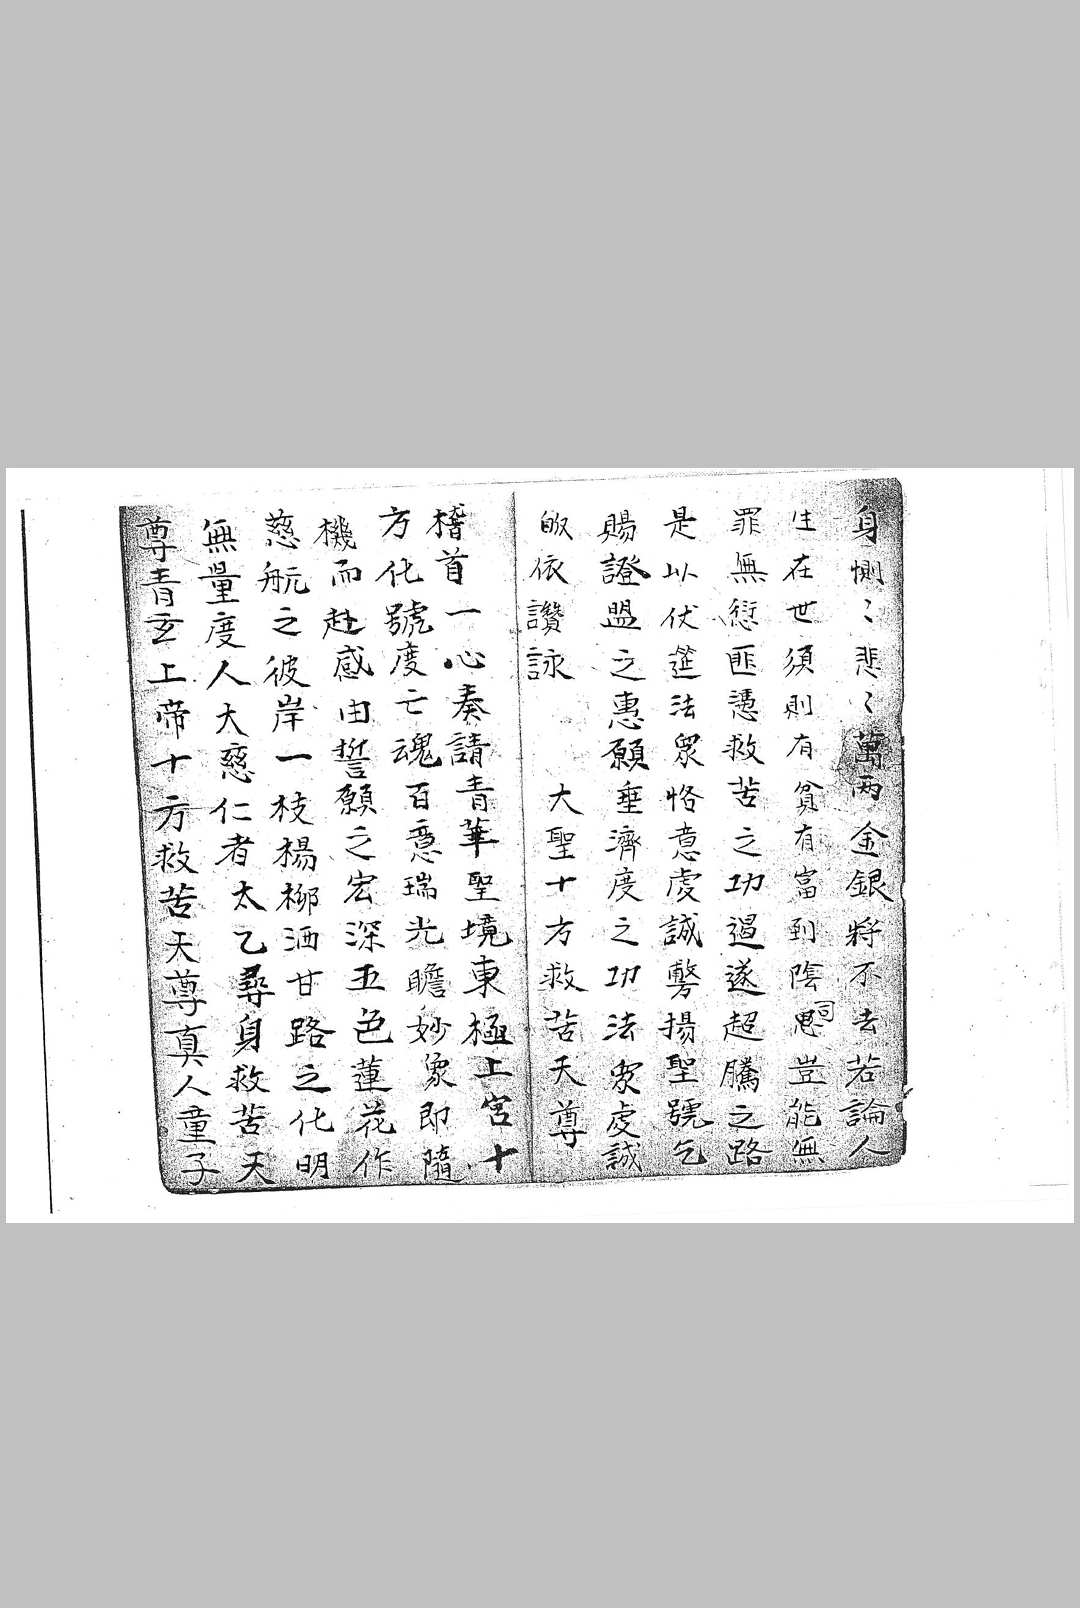 身惻〻悲〻萬両金銀將不去若論人
生在世須則有貧有富到陰司思豈能無
罪無愆匪憑救苦之功過遂超騰之路
是以伏筵法眾恪意虔誠謦揚聖號乞
賜證盟之惠願垂濟度之功法眾虔誠
皈依讚詠　　大聖十方救苦天尊
稽首一心奏請青華聖境東極上宮十
方化號度亡魂百億瑞光瞻妙象即隨
機而赴感由誓願之宏深五色蓮花作
慈航之彼岸一枝楊柳洒甘路之化明
無量度人大慈仁者太乙尋身救苦天
尊青玄上帝十方救苦天尊真人童子